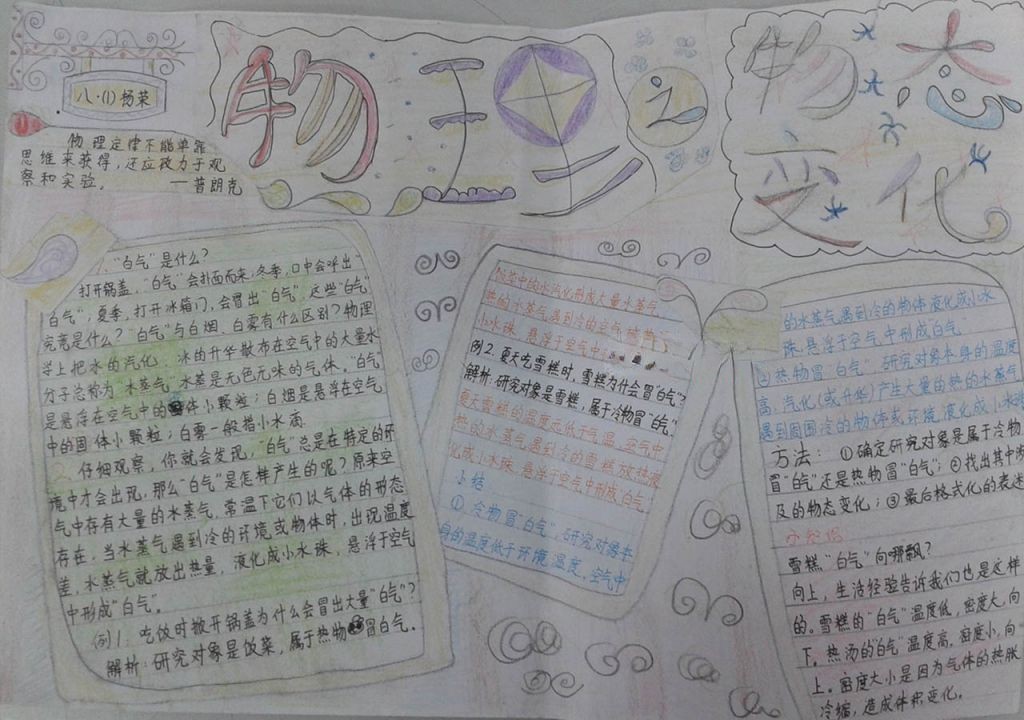 八·(1) 杨荣
物理之
物态
变化
物理定律不能单靠
思维来获得，还应致力于观
察和实验。
——普朗克
"白气"是什么？
打开锅盖，"白气"会扑面而来，冬季，口中会呼出
"白气"，夏季，打开冰箱门，会冒出"白气"。这些"白气"
究竟是什么？"白气"与白烟、白雾有什么区别？物理
学上把水的汽化、冰的升华散布在空气中的大量水
分子总称为水蒸气，水蒸是无色无味的气体。"白气"
是悬浮在空气中的体小颗粒；白烟是悬浮在空气
中的固体小颗粒；白雾一般指小水滴。
2. 仔细观察，你就会发现，"白气"总是在特定的环
境中才会出现，那么"白气"是怎样产生的呢？原来空
气中存有大量的水蒸气，常温下它们以气体的形态
存在，当水蒸气遇到冷的环境或物体时，出现温度
差，水蒸气就放出热量，液化成小水珠，悬浮于空气
中形成"白气"。
例1. 吃饭时掀开锅盖为什么会冒出大量"白气"？
解析：研究对象是饭菜，属于热物冒白气。
饭菜中的水汽化形成大量水蒸气，
热的水蒸气遇到冷的空气液
小水珠，悬浮于空气中
例2. 夏天吃雪糕时，雪糕为什会冒"白气"？
解析：研究对象是雪糕，属于冷物冒"白气"。
夏天雪糕的温度远低于气温，空气中
热的水蒸气遇到冷的雪糕放热液
化成小水珠，悬浮于空气中形成"白气"
小结
①冷物冒"白气"，研究对象本
身的温度低于环境温度，空气中
的水蒸气遇到冷的物体液化成小水
珠，悬浮于空气中形成白气
②热物冒"白气"研究对象本身的温度
高，汽化(或升华)产生大量的热的水蒸气
遇到周围冷的物体或环境，液化成小水珠
方法：①确定研究对象是属于冷物
冒"白气"还是热物冒"白气"；②找出其中涉
及的物态变化；③最后格式化的表述
雪糕"白气"向哪飘？
向上，生活经验告诉我们也是这样
的。雪糕的"白气"温度低，密度大，向
下。热汤的白气"温度高，密度小，向
上。密度大小是因为气体的热胀
冷缩，造成体积变化。